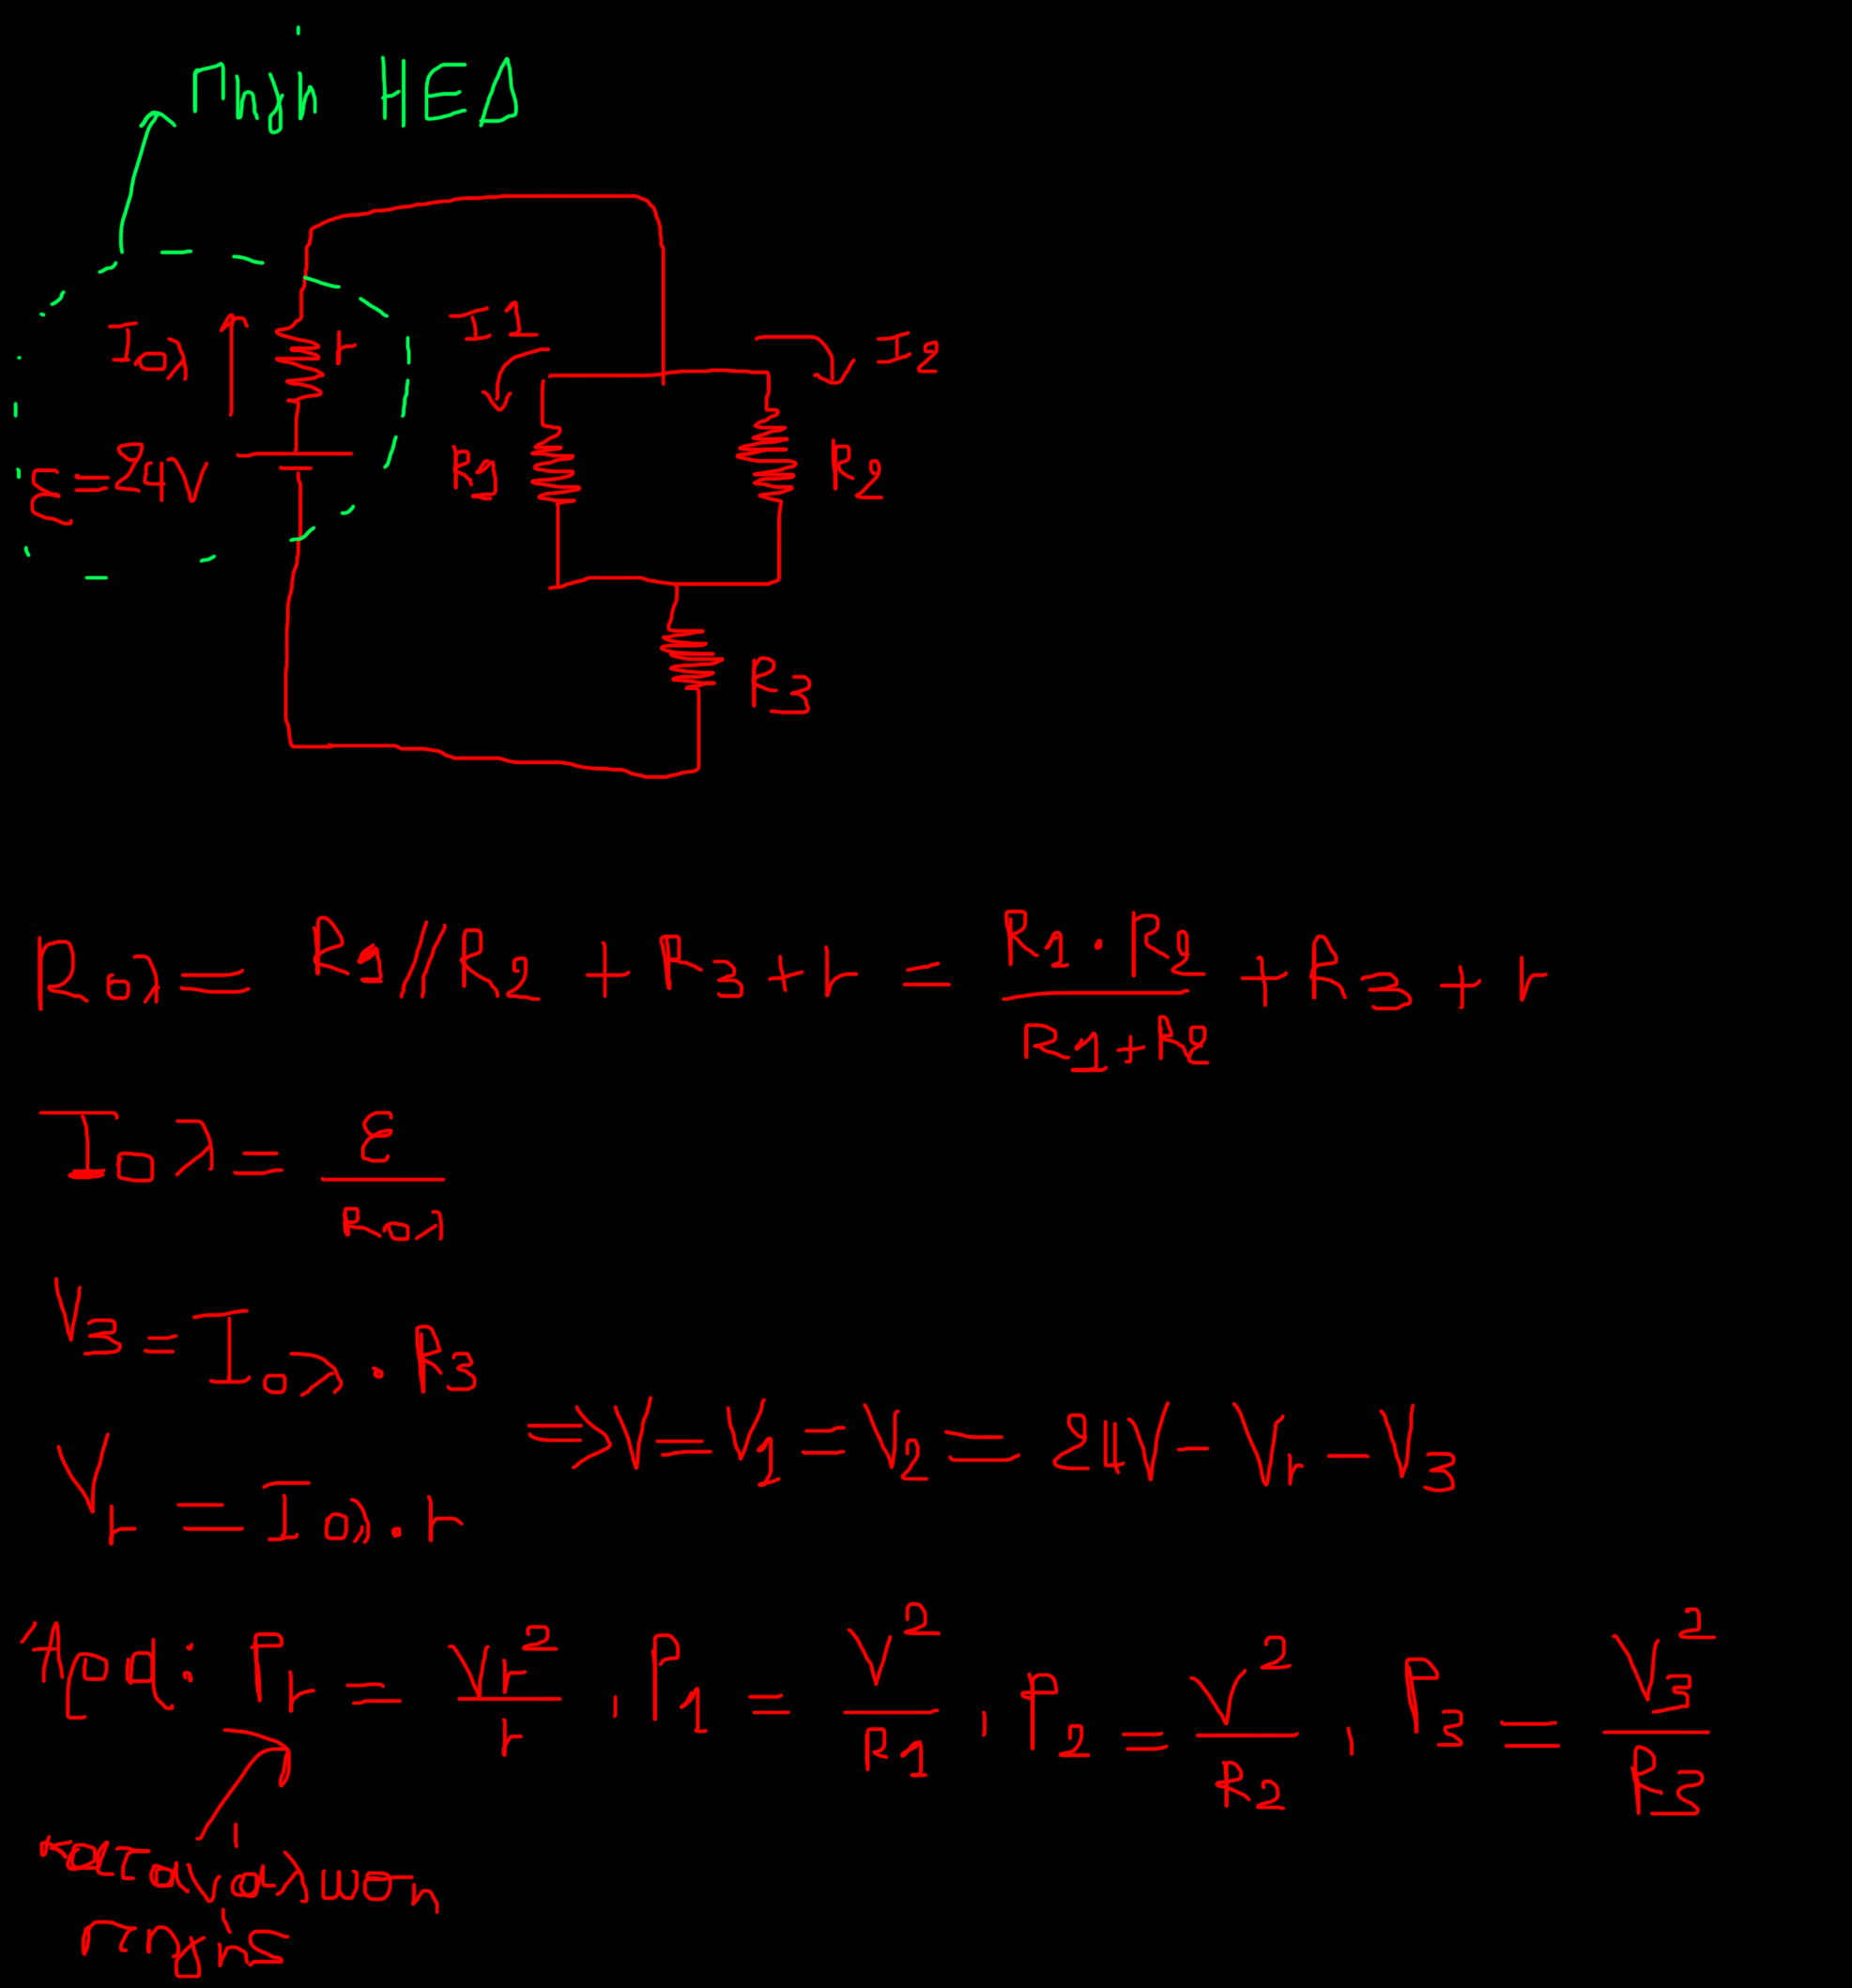 Πηγή ΗΕΔ
Iολ
r
I1
I2
ε=24V
R1
R2
R3
Rολ= R1//R2 + R3+r = R1·R2 / R1+R2 +R3+r
Iολ= ε / Rολ
V3=Iολ·R3
⇒V=V1=V2=24V-Vr-V3
Vr=Iολ·r
Άρα: Pr= Vr² / r , P1= V² / R1 , P2= V² / R2 , P3= V3² / R3
κατανάλωση
πηγής